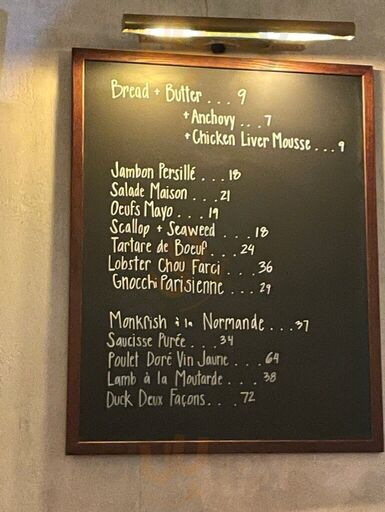 Bread + Butter . . . 9
+ Anchovy . . . 7
+ Chicken Liver Mousse . . . 9
Jambon Persillé . . . 18
Salade Maison . . . 21
Oeufs Mayo . . . 19
Scallop + Seaweed . . . 18
Tartare de Boeuf . . . 24
Lobster Chou Farci . . . 36
Gnocchi Parisienne . . . 29
Monkfish à la Normande . . . 37
Saucisse Purée . . . 34
Poulet Doré Vin Jaune . . . 64
Lamb à la Moutarde . . . 38
Duck Deux Façons . . . 72